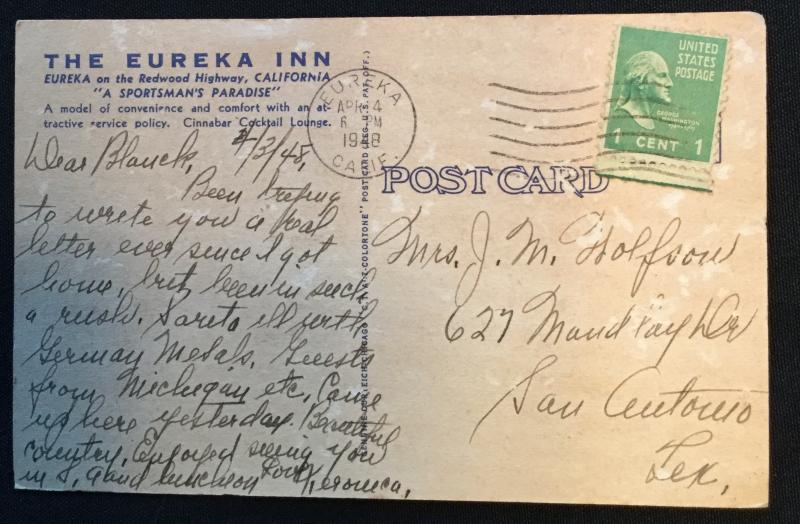 THE EUREKA INN
EUREKA on the Redwood Highway, CALIFORNIA
"A SPORTSMAN'S PARADISE"
A model of convenience and comfort with an at-
tractive service policy. Cinnabar Cocktail Lounge.
Dear Blanch, 4/3/48,
Been trying
to write you a real
letter ever since I got
home, but been in such
a rush. ill with
German Measles. Guests
from Michigan etc. Came
up here yesterday. Beautiful
country. Enjoyed seeing you
in S. A and luncheon Love Veronica,
GENUINE CURTEICH-CHICAGO "C.T. ART-COLORTONE" POST CARD (REG. U.S. PAT. OFF.)
EUREKA
APR 4
6 PM
1948
CALIF.
UNITED
STATES
POSTAGE
GEORGE
WASHINGTON
1 CENT 1
POST CARD
Mrs. J. M. Wolfson
627 Mandalay Dr
San Antonio
Tex.